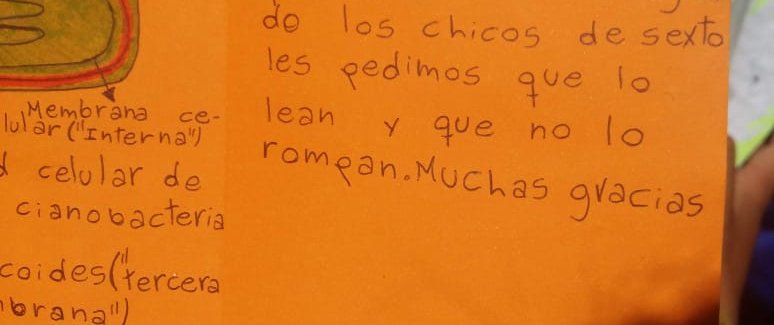 Membrana ce-
lular ("Interna")
celular de
cianobacteria
coides ("tercera
brana")
do los chicos de sexto
les pedimos que lo
lean y que no lo
rompan. Muchas gracias